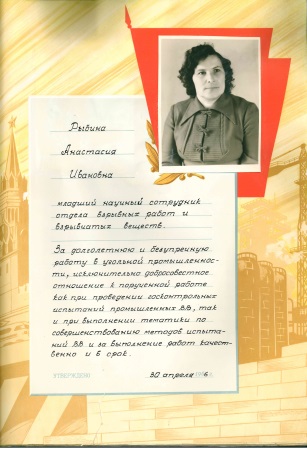 Рыбина
Анастасия
Ивановна
младший научный сотрудник
отдела взрывных работ и
взрывчатых веществ.
За долголетнюю и безупречную
работу в угольной промышленнос-
ти, исключительно добросовестное
отношение к порученной работе
как при проведении госконтрольных
испытаний промышленных ВВ, так
и при выполнении тематики по
совершенствованию методов испыта-
ний ВВ и за выполнение работ качест-
венно и в срок.
УТВЕРЖДЕНО 30 апреля